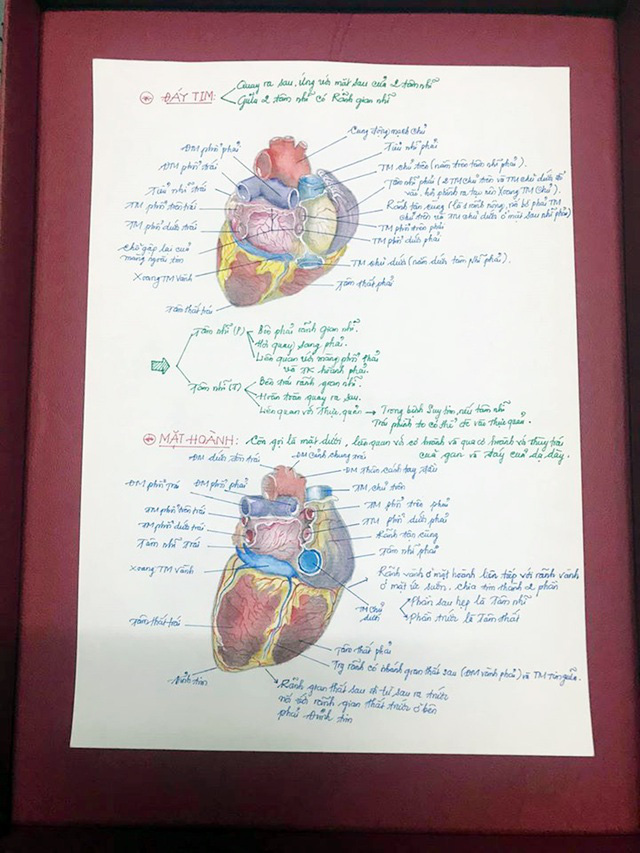 ĐÁY TIM:
Quay ra sau, ứng với mặt sau của 2 tâm nhĩ
Giữa 2 tâm nhĩ có Rãnh gian nhĩ
Cung động mạch chủ
Tiểu nhĩ phải
ĐM phổi phải
ĐM phổi trái
Tiểu nhĩ trái
TM phổi trên trái
TM phổi dưới trái
Chỗ gấp lại của
màng ngoài tim
Xoang TM Vành
Tâm thất trái
TM chủ trên (nằm trên tâm nhĩ phải).
Tâm nhĩ phải (2 TM chủ trên và TM chủ dưới đổ
vào, bị phình ra tạo nên Xoang TM Chủ).
Rãnh tận cùng (là 1 rãnh nông, nối bờ phải TM
chủ trên và TM chủ dưới ở mặt sau nhĩ phải)
TM phổi trên phải
TM phổi dưới phải
TM chủ dưới (nằm dưới tâm nhĩ phải).
Tâm thất phải
Tâm nhĩ (P)
Bên phải rãnh gian nhĩ.
Hơi quay sang phải.
Liên quan với màng phổi phải
và TK hoành phải.
Tâm nhĩ (T)
Bên trái rãnh gian nhĩ.
Hoàn toàn quay ra sau.
Liên quan với Thực quản → Trong bệnh Suy tim, nếu tâm nhĩ
Trái phình to có thể đè vào thực quản.
MẶT HOÀNH: Còn gọi là mặt dưới, liên quan với cơ hoành và qua cơ hoành và thùy trái
của gan và đáy của dạ dày.
ĐM dưới đòn trái
ĐM Cảnh chung trái
ĐM Thân cánh tay đầu
ĐM phổi trái
ĐM phổi phải
TM chủ trên
TM phổi trên trái
TM phổi dưới trái
Tâm nhĩ Trái
Xoang TM vành
Tâm thất trái
Đỉnh tim
TM phổi trên phải
TM phổi dưới phải
Rãnh tận cùng
Tâm nhĩ phải
TM Chủ
dưới
Rãnh vành ở mặt hoành liên tiếp với rãnh vành
ở mặt ức sườn. chia tim thành 2 phần
Phần sau hẹp là Tâm nhĩ
Phần trước là Tâm thất
Tâm thất phải
Trg rãnh có nhánh gian thất sau (ĐM vành phải) và TM tim giữa.
Rãnh gian thất sau đi từ sau ra trước
nối với rãnh gian thất trước ở bên
phải Đỉnh tim